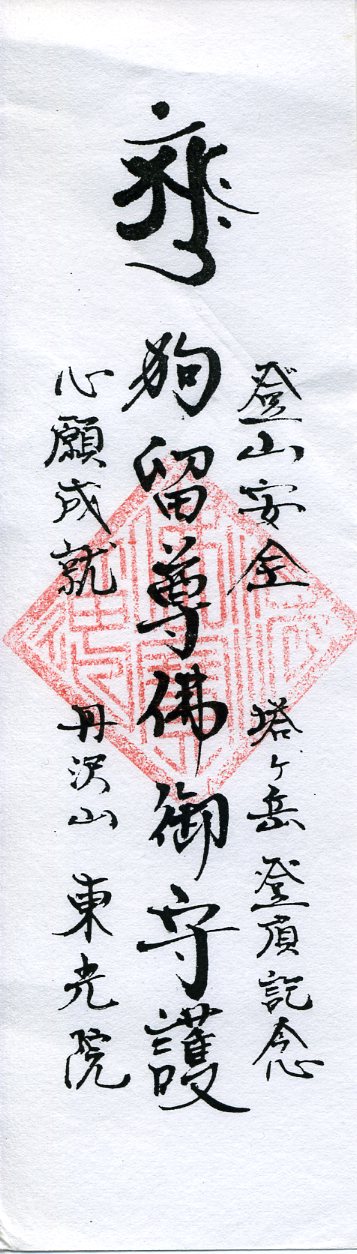 登山安全　塔ヶ岳登頂記念
狗留尊佛御守護
心願成就　丹沢山　東光院